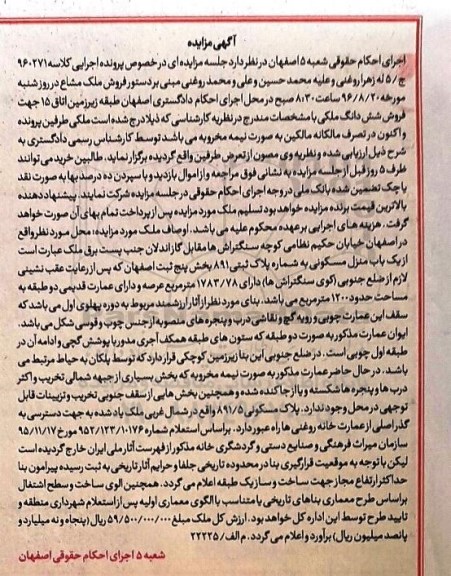 آگهی مزایده
اجرای احکام حقوقی شعبه ۵ اصفهان در نظر دارد جلسه مزایده ای در خصوص پرونده اجرایی کلاسه ۹۶۰۲۷۱
ج/۵ له زهرا روغنی و علیه محمد حسین و علی و محمد روغنی مبنی بر دستور فروش ملک مشاع در روز شنبه
مورخه ۹۶/۸/۲۰ ساعت ۸:۳۰ صبح در محل اجرای احکام دادگستری اصفهان طبقه زیرزمین اتاق ۱۵ جهت
فروش شش دانگ ملکی با مشخصات مندرج در نظریه کارشناسی که ذیلا درج شده است ملکی طرفین پرونده
و اکنون در تصرف مالکانه مالکین به صورت نیمه مخروبه می باشد توسط کارشناس رسمی دادگستری به
شرح ذیل ارزیابی شده و نظریه وی مصون از تعرض طرفین واقع گردیده برگزار نماید. طالبین خرید می توانند
ظرف ۵ روز قبل از جلسه مزایده به نشانی فوق مراجعه و از اموال بازدید و با سپردن ده درصد بها به صورت نقد
یا چک تضمین شده بانک ملی در وجه اجرای احکام حقوقی در جلسه مزایده شرکت نمایند. پیشنهاد دهنده
بالاترین قیمت برنده مزایده خواهد بود تسلیم ملک مورد مزایده پس از پرداخت تمام بهای آن صورت خواهد
گرفت. هزینه های اجرایی بر عهده محکوم علیه می باشد. اوصاف ملک مورد مزایده: محل مورد نظر واقع
در اصفهان خیابان حکیم نظامی کوچه سنگتراش ها مقابل گاراندلان جنب پست برق ملک عبارت است
از یک باب منزل مسکونی به شماره پلاک ثبتی ۸۹۱ بخش پنج ثبت اصفهان که پس از رعایت عقب نشینی
لازم از ضلع جنوبی (کوی سنگتراش ها) دارای ۱۷۸۳/۷۸ مترمربع عرصه و دارای عمارت قدیمی دو طبقه به
مساحت حدود ۱۲۰۰ مترمربع می باشد. بنای مورد نظر از آثار ارزشمند مربوط به دوره پهلوی اول می باشد که
سقف این عمارت چوبی و رویه گچ و نقاشی درب و پنجره های منصوبه از جنس چوب و قوسی شکل می باشد.
ایوان عمارت مذکور به صورت دو طبقه که ستون های طبقه همکف آجری مدور با پوشش گچی و ادامه آن در
طبقه اول چوبی است. در ضلع جنوبی این بنا زیرزمین کوچکی قرار دارد که توسط پلکان به حیاط مرتبط می
باشد. در حال حاضر عمارت مذکور به صورت نیمه مخروبه که بخش بسیاری از جبهه شمالی تخریب و اکثر
درب ها و پنجره ها شکسته و یا از جا کنده شده و همچنین بخش هایی از سقف جنوبی تخریب و تزیینات قابل
توجهی در محل وجود ندارد. پلاک مسکونی ۸۹۱/۵ واقع در شمال غربی ملک یاد شده به جهت دسترسی به
گذر اصلی از عمارت خانه روغنی ها راه عبور دارد. براساس استعلام شماره ۹۵۲/۱۲۳/۱۰۱۷۶ مورخ ۹۵/۱۱/۱۷
سازمان میراث فرهنگی و صنایع دستی و گردشگری خانه مذکور از فهرست آثار ملی ایران خارج گردیده است
لیکن با توجه به موقعیت قرارگیری بنا در محدوده تاریخی جلفا و حرایم آثار تاریخی به ثبت رسیده پیرامون بنا
حداکثر ارتفاع مجاز جهت ساخت و ساز یک طبقه اعلام می گردد. همچنین الوی ساخت و سطح اشتغال
براساس طرح معماری بناهای تاریخی یا متناسب با الگوی معماری اولیه پس از استعلام شهرداری منطقه و
تایید طرح توسط این اداره کل خواهد بود. ارزش کل ملک مبلغ ۵۹/۵۰۰/۰۰۰/۰۰۰ ریال (پنجاه و نه میلیارد و
پانصد میلیون ریال) برآورد و اعلام می گردد. م الف/ ۲۲۲۲۵
شعبه ۵ اجرای احکام حقوقی اصفهان